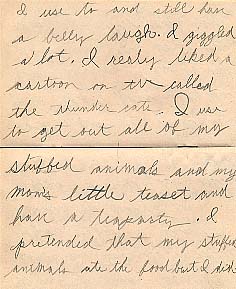 I use to and still have
a belly laugh. I giggled
a lot. I realy liked a
cartoon on tv called
the thunder cats. I use
to get out all of my
stuffed animals and my
mom's little teaset and
have a teaparty. I
pretended that my stuffed
animals ate the food but I did.